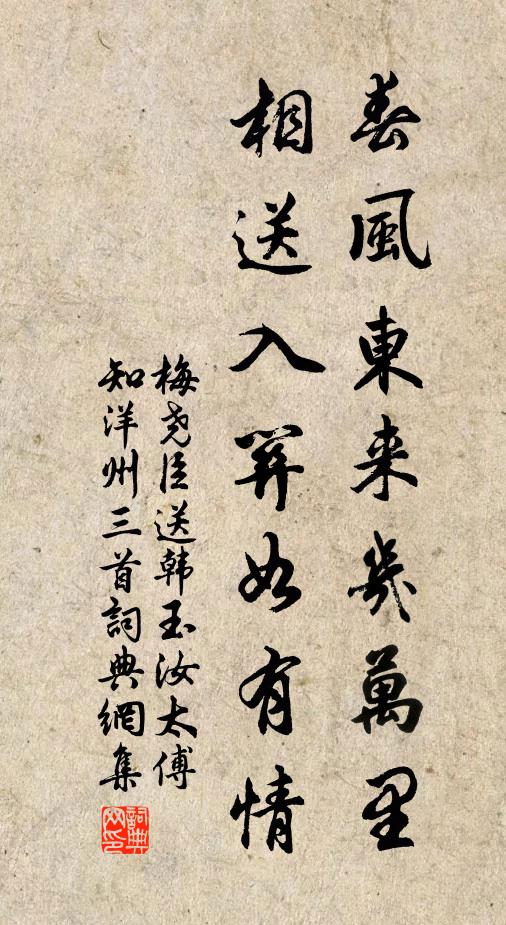 春風東来幾萬里
相送入如有情
梅尧臣送韩玉汝太傅
知洋州三首詞典網集
詞典
网印